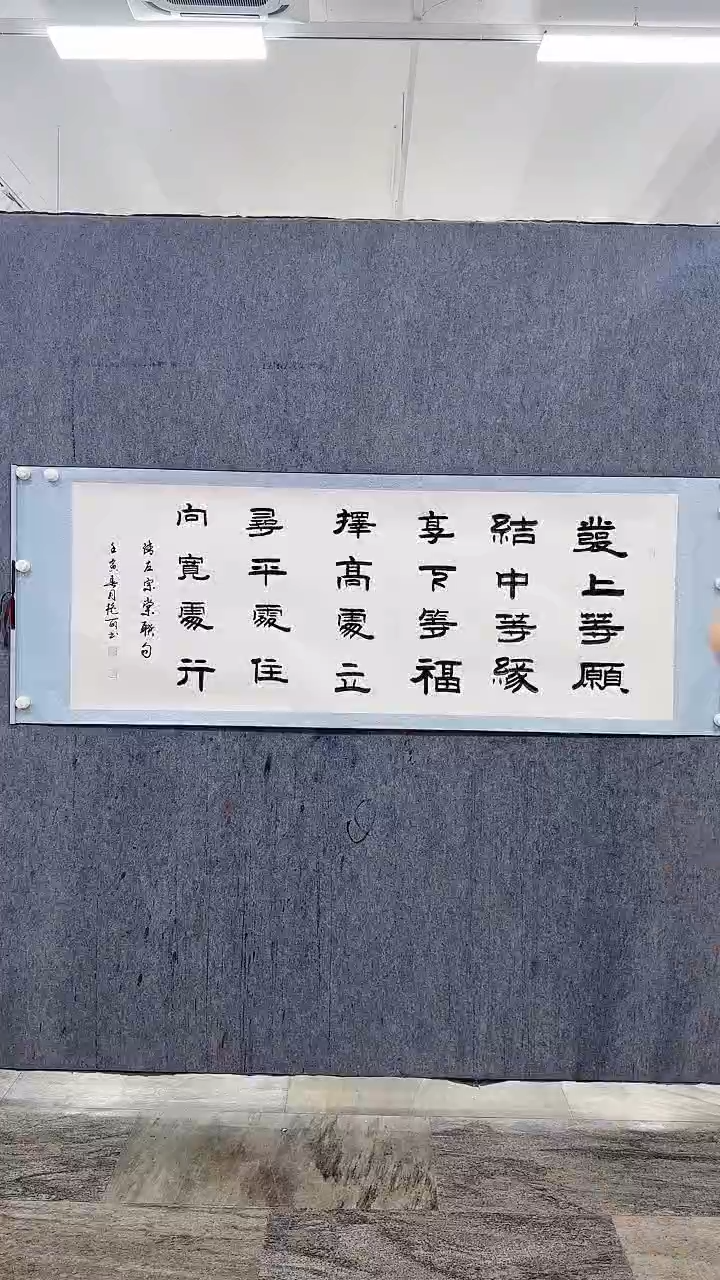 發上等願
結中等緣
享下等福
擇高處立
尋平處住
向寬處行
清左宗棠联句
壬寅春月艳丽书